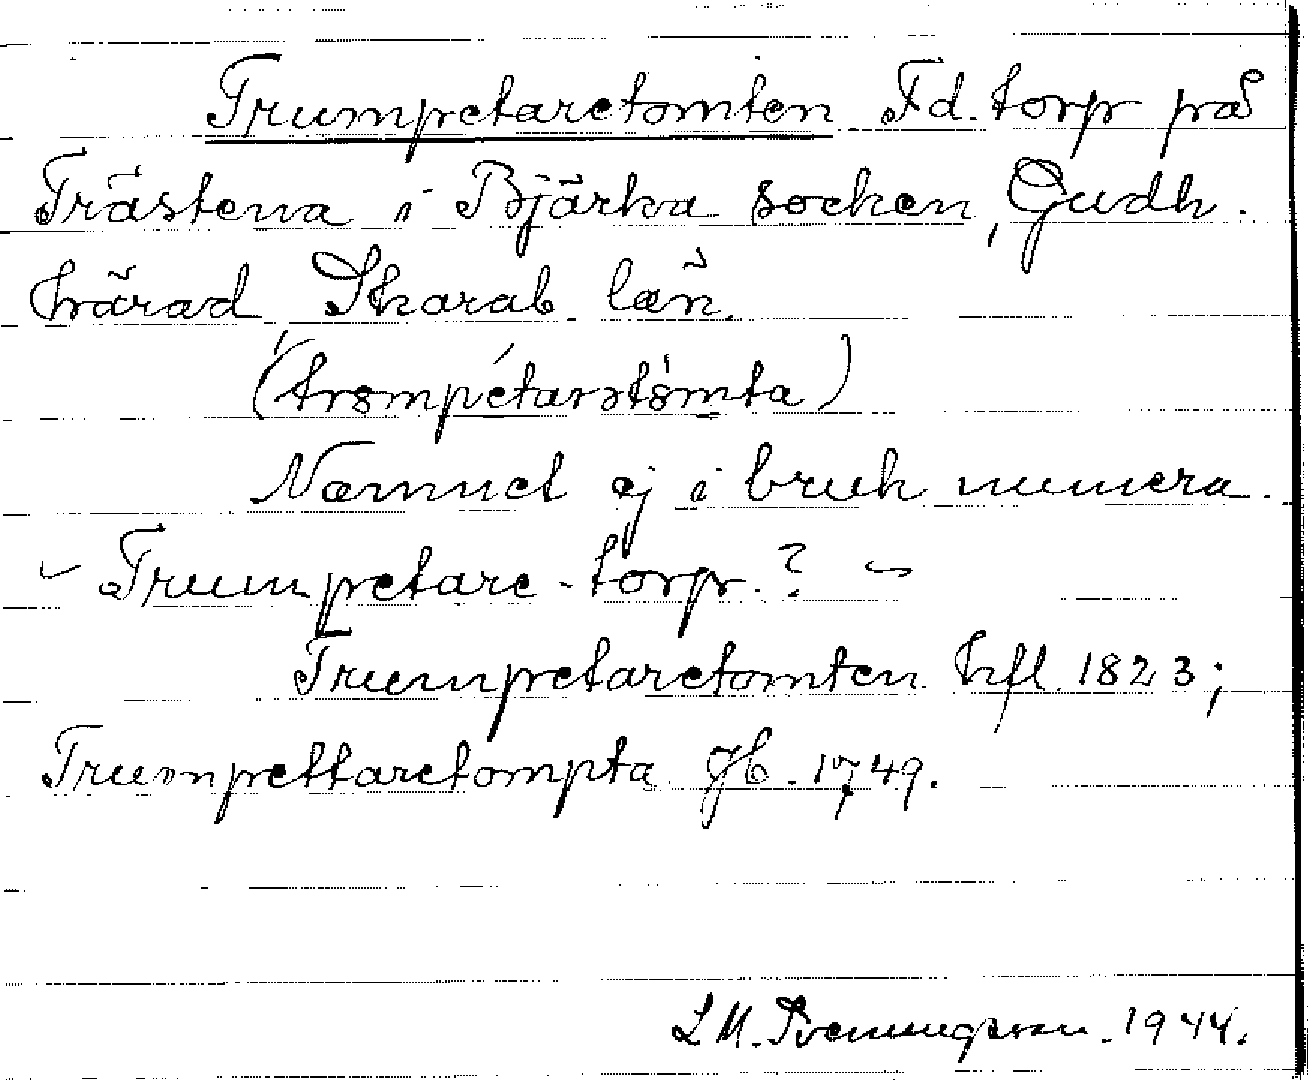 Trumpetaretomten Fd. torp på
Trästena i Bjärka socken, Gudh.
härad, Skarab. län.
(trømpétarstǿmta)
Namnet ej i bruk numera.
Trumpetare-torp.?
Trumpetaretomten hfl. 1823;
Trumpettaretompta Jb. 1749.
L M. Svenungsson. 1944.